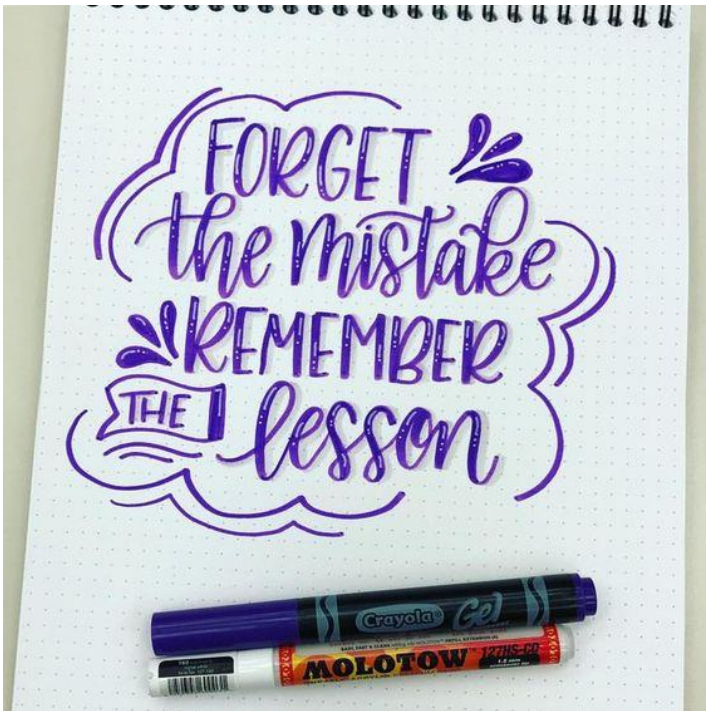 FORGET
the mistake
REMEMBER
THE lesson
Crayola® Gel
MOLOTOW™ 127HS-CO